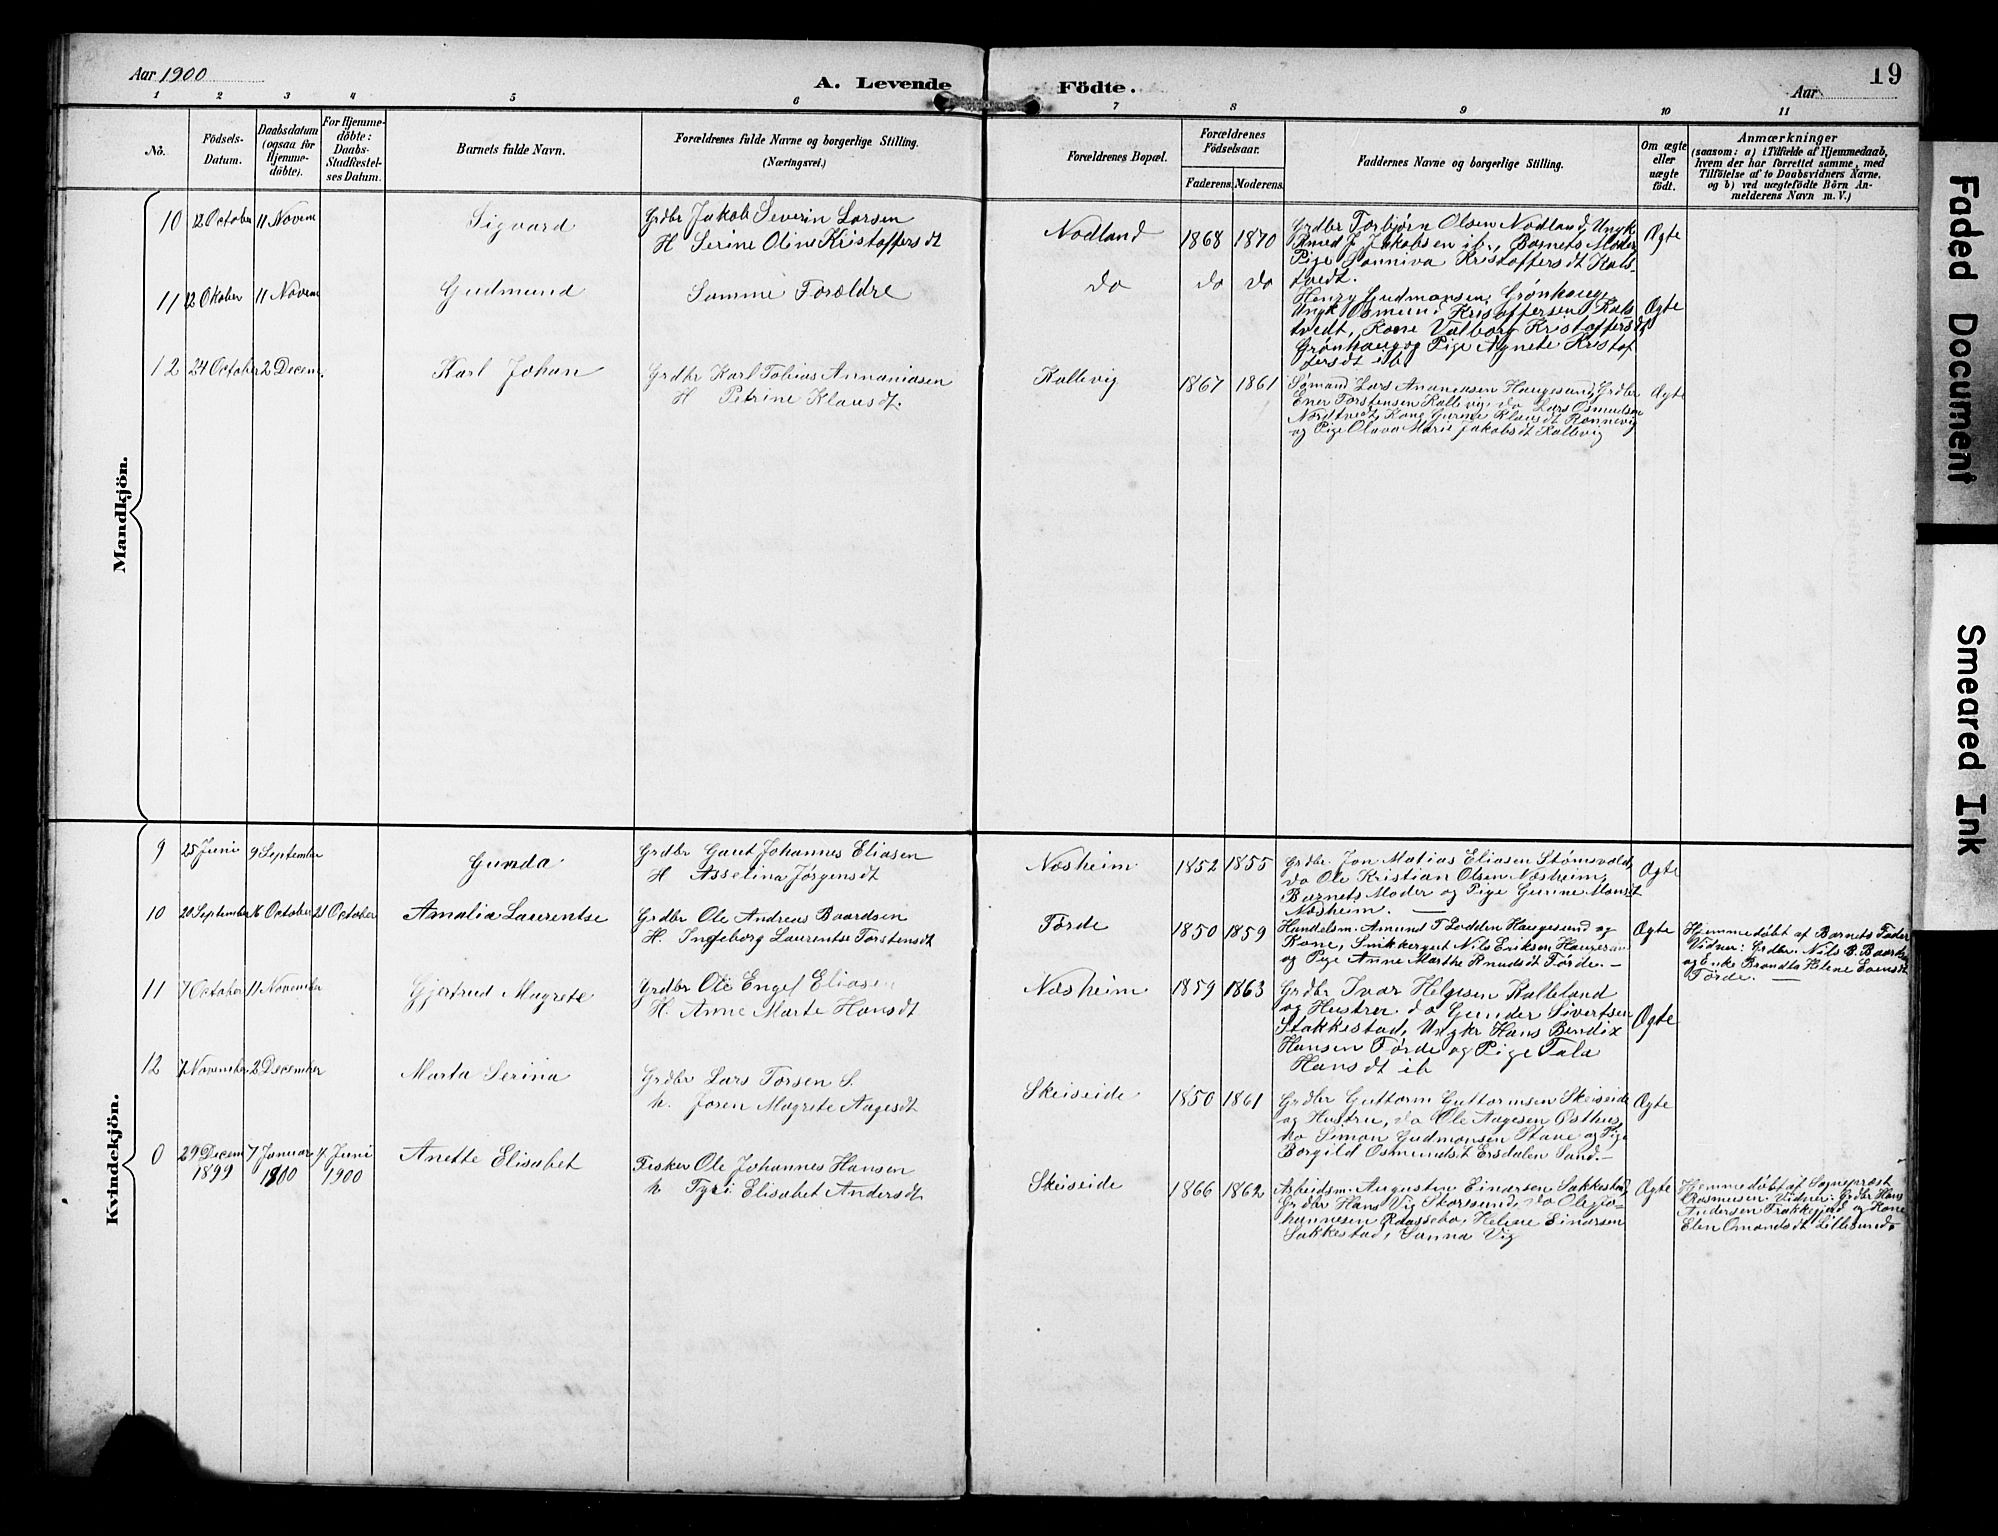 Aar 1900
A. Levende Födte.
19
Aar
1 2 3 4 5 6 7 8 9 10 11
No.
Födsels-
Datum.
Daabsdatum
(ogsaa för
Hjemme-
döbte).
For Hjemme-
döbte:
Daabs-
Stadfæstel-
ses Datum.
Barnets fulde Navn.
Forældrenes fulde Navne og borgerlige Stilling.
(Næringsvei.)
Forældrenes Bopæl.
Forældrenes
Födselsaar.
Faderens. Moderens.
Faddernes Navne og borgerlige Stilling.
Om ægte
eller
uægte
födt.
Anmærkninger
(saasom: a) i Tilfælde af Hjemmedaab,
hvem der har forrettet samme, med
Tilföielse af to Daabsvidners Navne.
og b) ved uægtefödte Börn An-
melderens Navn m. V.)
Mandkjön.
10 12 October 11 Novem Sigvard
Grdbr Jakob Severin Larsen
H Serine Oline Kristoffersdt
Nodland 1868 1870
Grdbr Torbjørn Olsen Nodland, Ungk
J Jakobsen ib., Barnets Moder
Pige Sanniva Kristoffersdt Kals-
tvedt.
Ægte
11 12 Okober 11 Novem Gudmund
Samme Forældre
do do do
Henry Gudmonsen Grønhaug
Ungk Osmund Kristoffersen Kals-
tvedt, Kone Valborg Kristoffersdt
Grønhaug og Pige Agnete Kristof
fersdt ib
Ægte
12 24 October 2 Decem. Karl Johan
Grdbr Karl Tobias Annaniasen
H Petrine Klausdt.
Kallevig 1867 1861
Sømand Lars Ananiasen Haugesund, Grdbr
Ener Torstensen Kallevig, do Lars Osmulsen
Nordtvedt, Kone Gurine Klausdt Rønnevig
og Pige Olava Marie Jakobsdt Kallevig
Ægte
Kvindekjön.
9 25 Juni 9 September Gunda
Grdbr Gaut Johannes Eliasen
H Asselina Jørgensdt
Næsheim 1852 1855
Grdbr. Jon Matias Eliasen Stømsvold,
do Ole Kristian Olsen Næsheim,
Barnets Moder og Pige Gunine Monsdt
Næsheim.
Ægte
10 20 September 16 October 21 October Amalia Laurentse
Grdbr Ole Andreas Baardsen
H. Ingeborg Laurentse Torstensdt
Førde 1850 1859
Handelsm. Amund T Lodden Haugesund og
Kone, Snikkergut Nils Eriksen Haugesund
og Pige Anne Marthe Knudsdt Førde.
Ægte
Hjemmedøbt af Barnets Fader
Vidner: Grdbr. Nils B. Baards
og Enke Brandta Helene Evensdt
Førde.
11 7 October 11 November Gjertrud Magrete
Grdbr Ole Engel Eliasen
H. Anne Marte Hansdt
Næsheim 1859 1863
Grdbr Ivar Helgesen Kalleland
og Hustru do Gunder Sivertsen
Stakkestad, Ungkr Hans Bendix
Hansen Førde og Pige Tala
Hansdt ib
Ægte
12 7 November 2 December Marta Serina
Grdbr Lars Torsen S.
h. Joren Magrete Aagesdt
Skeiseide 1850 1861
Grdbr Guttorm Guttormsen Skeiseide
og Hustru, do Ole Aagesen Østhus,
do Simon Gudmonsen Stave og Pige
Borgild Osmundsdt Ersdalen Sund.
Ægte
0 29 Decem 7 Januar 4 Juni Anette Elisabet
1899 1900 1900
Fisker Ole Johannes Hansen
h Tyri Elisabet Andersdt
Skeiseide 1866 1862
Arbeidsm. Augustin Einarsen Sakkestad,
Grdbr Hans Vig Storesund, do Ole Jo-
hannesen Raassebø, Helene Einarsen
Sakkestad, Sanna Vig
Ægte
Hjemmedøbt af Sognepræst
Rasmusen. Vidner: Grdbr Hans
Andersen Trækkejod og Kone
Elen Omondsdt Lillesund.
Faded Document
Smeared Ink